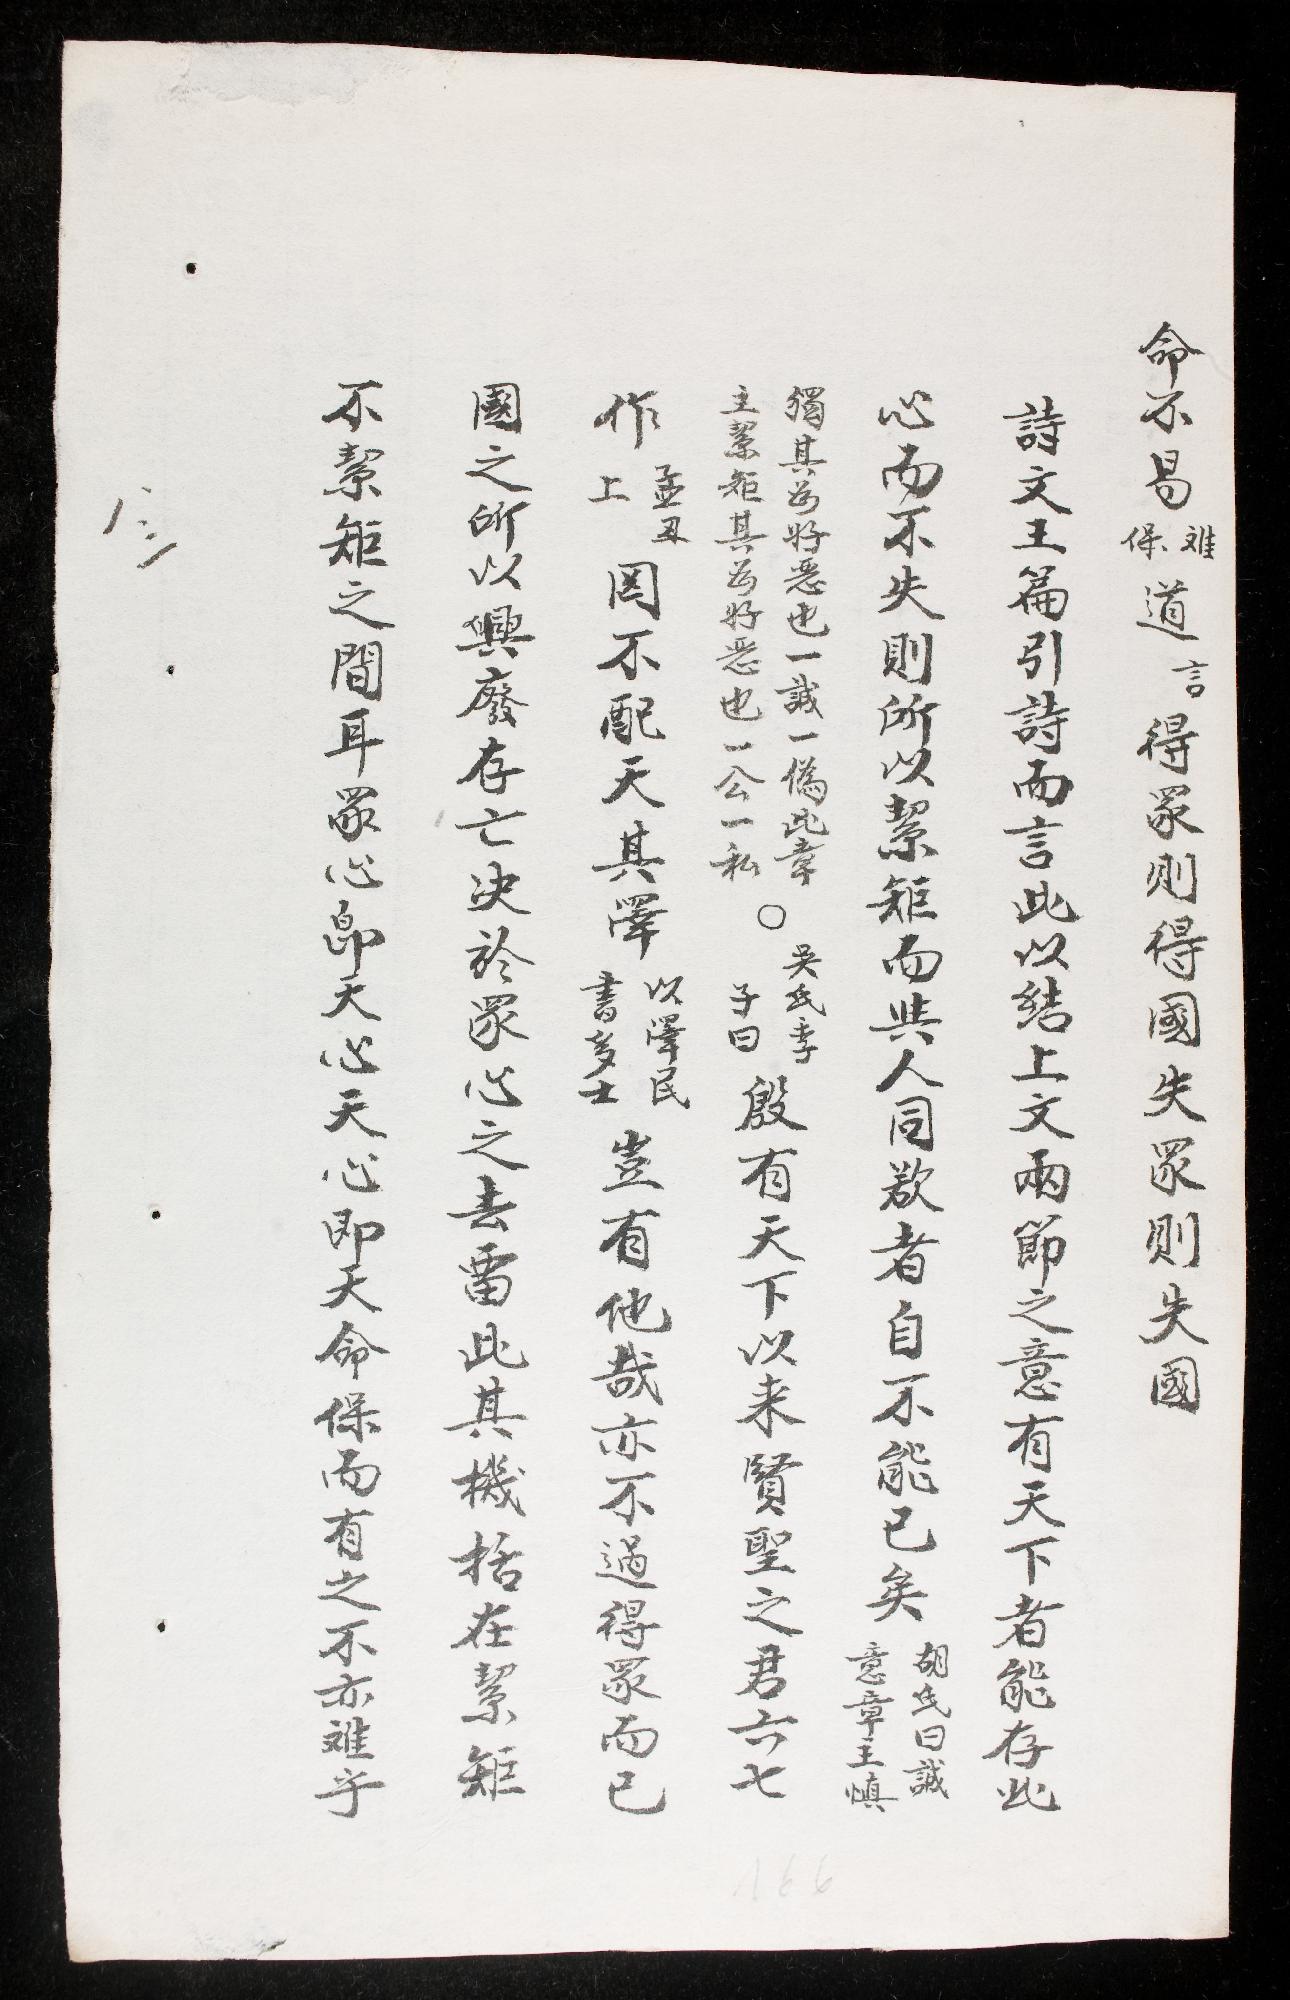 命不易難保道言得眾則得國失眾則失國
詩文王篇引詩而言此以結上文兩節之意有天下者能存此
心而不失則所以絜矩而與人同欲者自不能已矣胡氏曰誠意章主愼
獨其為好惡也一誠一偽此章主絜矩其為好惡也一公一私○吳氏季子曰殷有天下以来賢聖之君六七
作孟丑上罔不配天其澤以澤民書多士豈有他哉亦不過得眾而已
國之所以興廢存亡決於眾心之去留此其機括在絜矩
不絜矩之間耳眾心即天心天心即天命保而有之不亦难乎
166